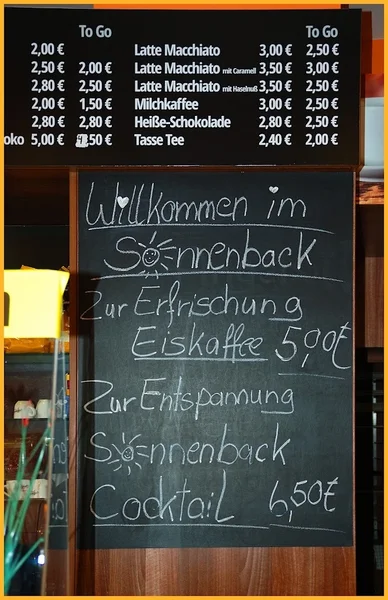 To Go To Go
2,00 € Latte Macchiato 3,00 € 2,50 €
2,50 € 2,00 € Latte Macchiato mit Caramell 3,50 € 3,00 €
2,80 € 2,50 € Latte Macchiato mit Haselnuß 3,50 € 2,50 €
2,00 € 1,50 € Milchkaffee 3,00 € 2,50 €
2,80 € 2,80 € Heiße-Schokolade 2,80 € 2,50 €
oko 5,00 € ,50 € Tasse Tee 2,40 € 2,00 €
Willkommen im
Sonnenback
Zur Erfrischung
Eiskaffee 5,00€
Zur Entspannung
Sonnenback
Cocktail 6,50€